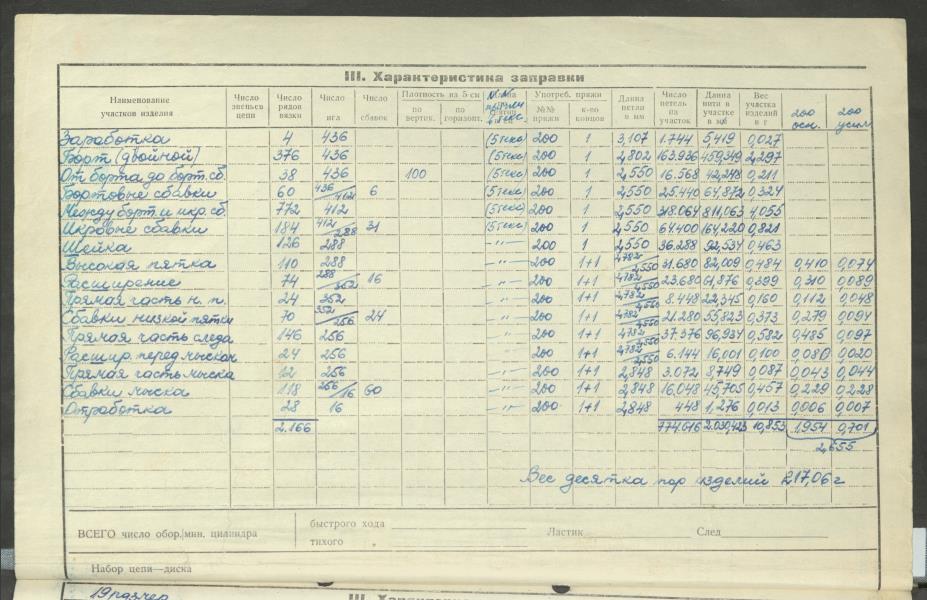 III. Характеристика заправки
Наименование участков изделия Число звеньев цепи Число рядов вязки Число игл Число сбавок Плотность на 5 см по вертик. по горизонт. Употреб. пряжи №№ пряжи к-во концов Длина петли в мм Число петель на участок Длина нити в участке в м Вес участка изделий в г 200 осн. 200 усил.
Заработка 4 436 (5текс) 200 1 3,107 1.744 5,419 0,027
Борт (двойной) 376 436 (5текс) 200 1 2,802 163.936 459,349 2,297
От борта до борт. сб. 38 436 100 (5текс) 200 1 2,550 16.568 42,248 0,211
Бортовые сбавки 60 436/412 6 (5текс) 200 1 2,550 25.440 64,872 0,324
Между борт. и икр. сб. 772 412 (5текс) 200 1 2,550 318.064 811,063 4,055
Икровые сбавки 184 412/288 31 (5текс) 200 1 2,550 64.400 164,220 0,821
Шейка 126 288 —"— 200 1 2,550 36.288 92,534 0,463
Высокая пятка 110 288 —"— 200 1+1 2,782/2,550 31.680 82,009 0,484 0,410 0,074
Расширение 74 288/352 16 —"— 200 1+1 2,782/2,550 23.680 61,876 0,399 0,310 0,089
Прямая часть н. п. 24 352 —"— 200 1+1 2,782/2,550 8.448 22,345 0,160 0,112 0,048
Сбавки низкой пятки 70 352/256 24 —"— 200 1+1 2,782/2,550 21.280 55,823 0,373 0,279 0,094
Прямая часть следа 146 256 —"— 200 1+1 2,782/2,550 37.376 96,934 0,582 0,485 0,097
Расшир. перед мыском 24 256 —"— 200 1+1 2,782/2,550 6.144 16,001 0,100 0,080 0,020
Прямая часть мыска 12 256 —"— 200 1+1 2,848 3.072 8,749 0,087 0,043 0,044
Сбавки мыска 118 256/16 60 —"— 200 1+1 2,848 16.048 45,705 0,457 0,229 0,228
Отработка 28 16 —"— 200 1+1 2,848 448 1,276 0,013 0,006 0,007
2.166 774.616 2.030,423 10,853 1,954 0,701
2,655
Вес десятка пар изделий 217,06 г
ВСЕГО число обор./мин. цилиндра быстрого хода
тихого Ластик След
Набор цепи—диска
19 размер
III. Характеристика